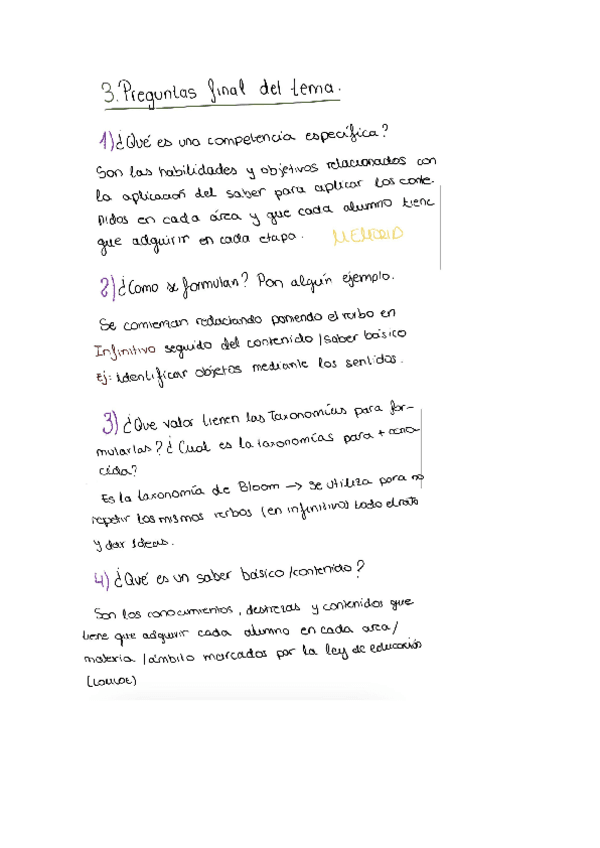 3. Preguntas final del tema.
1) ¿Qué es una competencia específica?
Son las habilidades y objetivos relacionados con
la aplicación del saber para aplicar los conte-
nidos en cada área y que cada alumno tiene
que adquirir en cada etapa. MEMORIA
2) ¿Como se formulan? Pon algún ejemplo.
Se comienzan redactando poniendo el verbo en
Infinitivo seguido del contenido / saber básico
Ej: identificar objetos mediante los sentidos.
3) ¿Que valor tienen las Taxonomías para for-
mularlas? ¿Cual es la taxonomías para + cono-
cida?
Es la taxonomía de Bloom → se utiliza para no
repetir los mismos verbos (en infinitivo) todo el rato
y dar ideas.
4) ¿Qué es un saber básico / contenido?
Son los conocimientos, destrezas y contenidos que
tiene que adquirir cada alumno en cada area /
materia / ámbito marcados por la ley de educación
(LOMLOE)